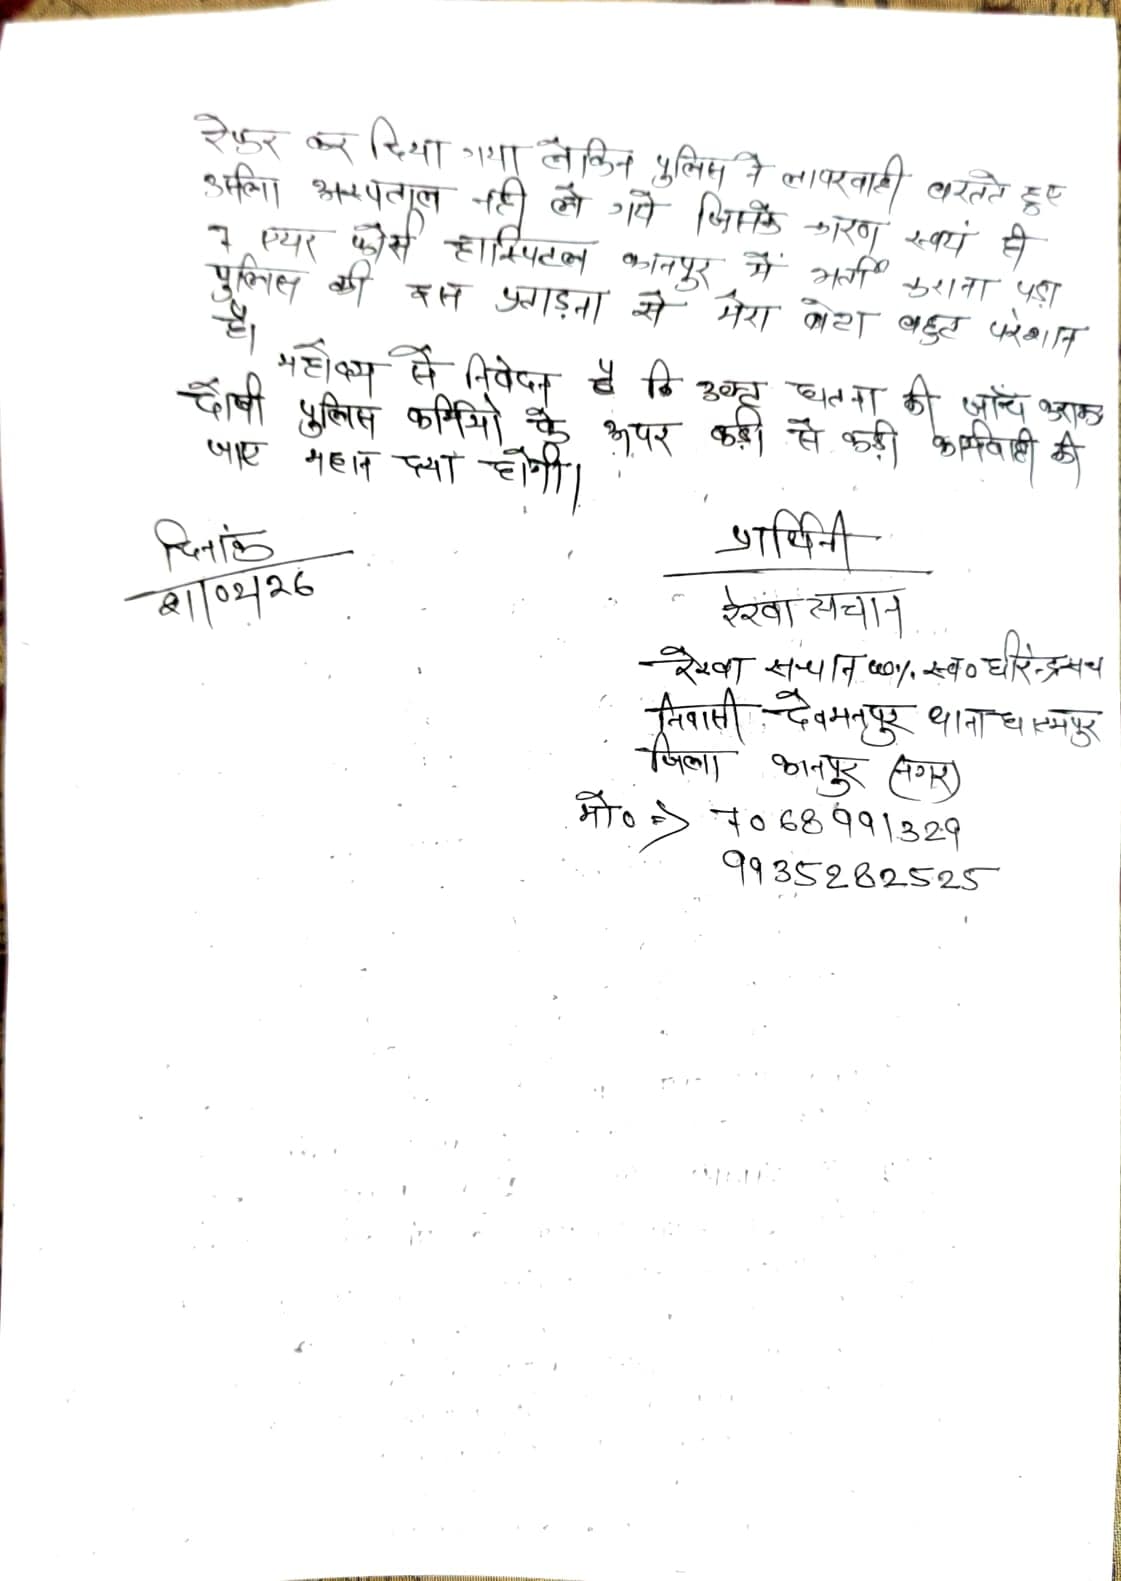 रेफर कर दिया गया लेकिन पुलिस ने लापरवाही बरतते हुए
अस्पताल नही ले गये जिसके कारण स्वयं ही
7 एयर फोर्स हास्पिटल कानपुर में भर्ती कराना पड़ा
पुलिस की इस प्रताड़ना से मेरा बेटा बहुत परेशान
है।
महोदय से निवेदन है कि उक्त घतना की जाँच कराकर
दोषी पुलिस कर्मियो के ऊपर कड़ी से कड़ी कार्यवाही की
जाए महान दया होगी।
दिनांक
21/02/26
प्रार्थिनी
रेखा सचान
रेखा सचान w/o स्व० धीरेन्द्र सच
निवासी देवमनपुर थाना घाटमपुर
जिला कानपुर (नगर)
मो० => 7068991329
9935282525